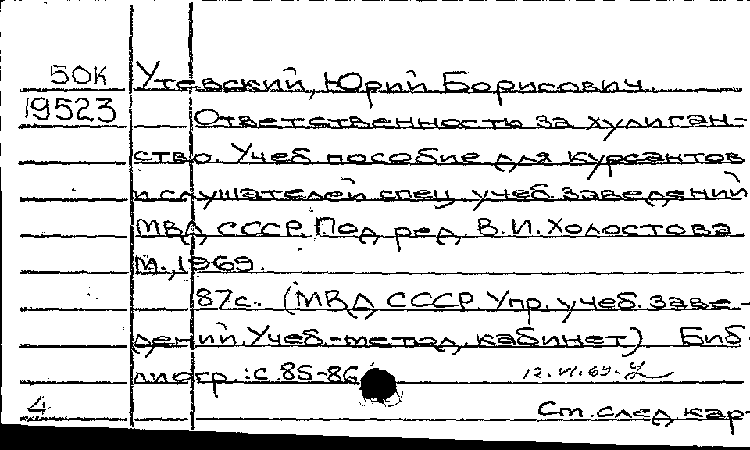 50К Утевский, Юрий Борисович.
19523 Ответственность за хулиган-
ство. Учеб. пособие для курсантов
и слушателей спец. учеб. заведений
МВД СССР. Под ред. В.И. Холостова
М., 1969.
87с. (МВД СССР. Упр. учеб. заве-
дений. Учеб.-метод. кабинет). Биб-
лиогр.: с. 85-86
12.VI.69.
4 См. след кар